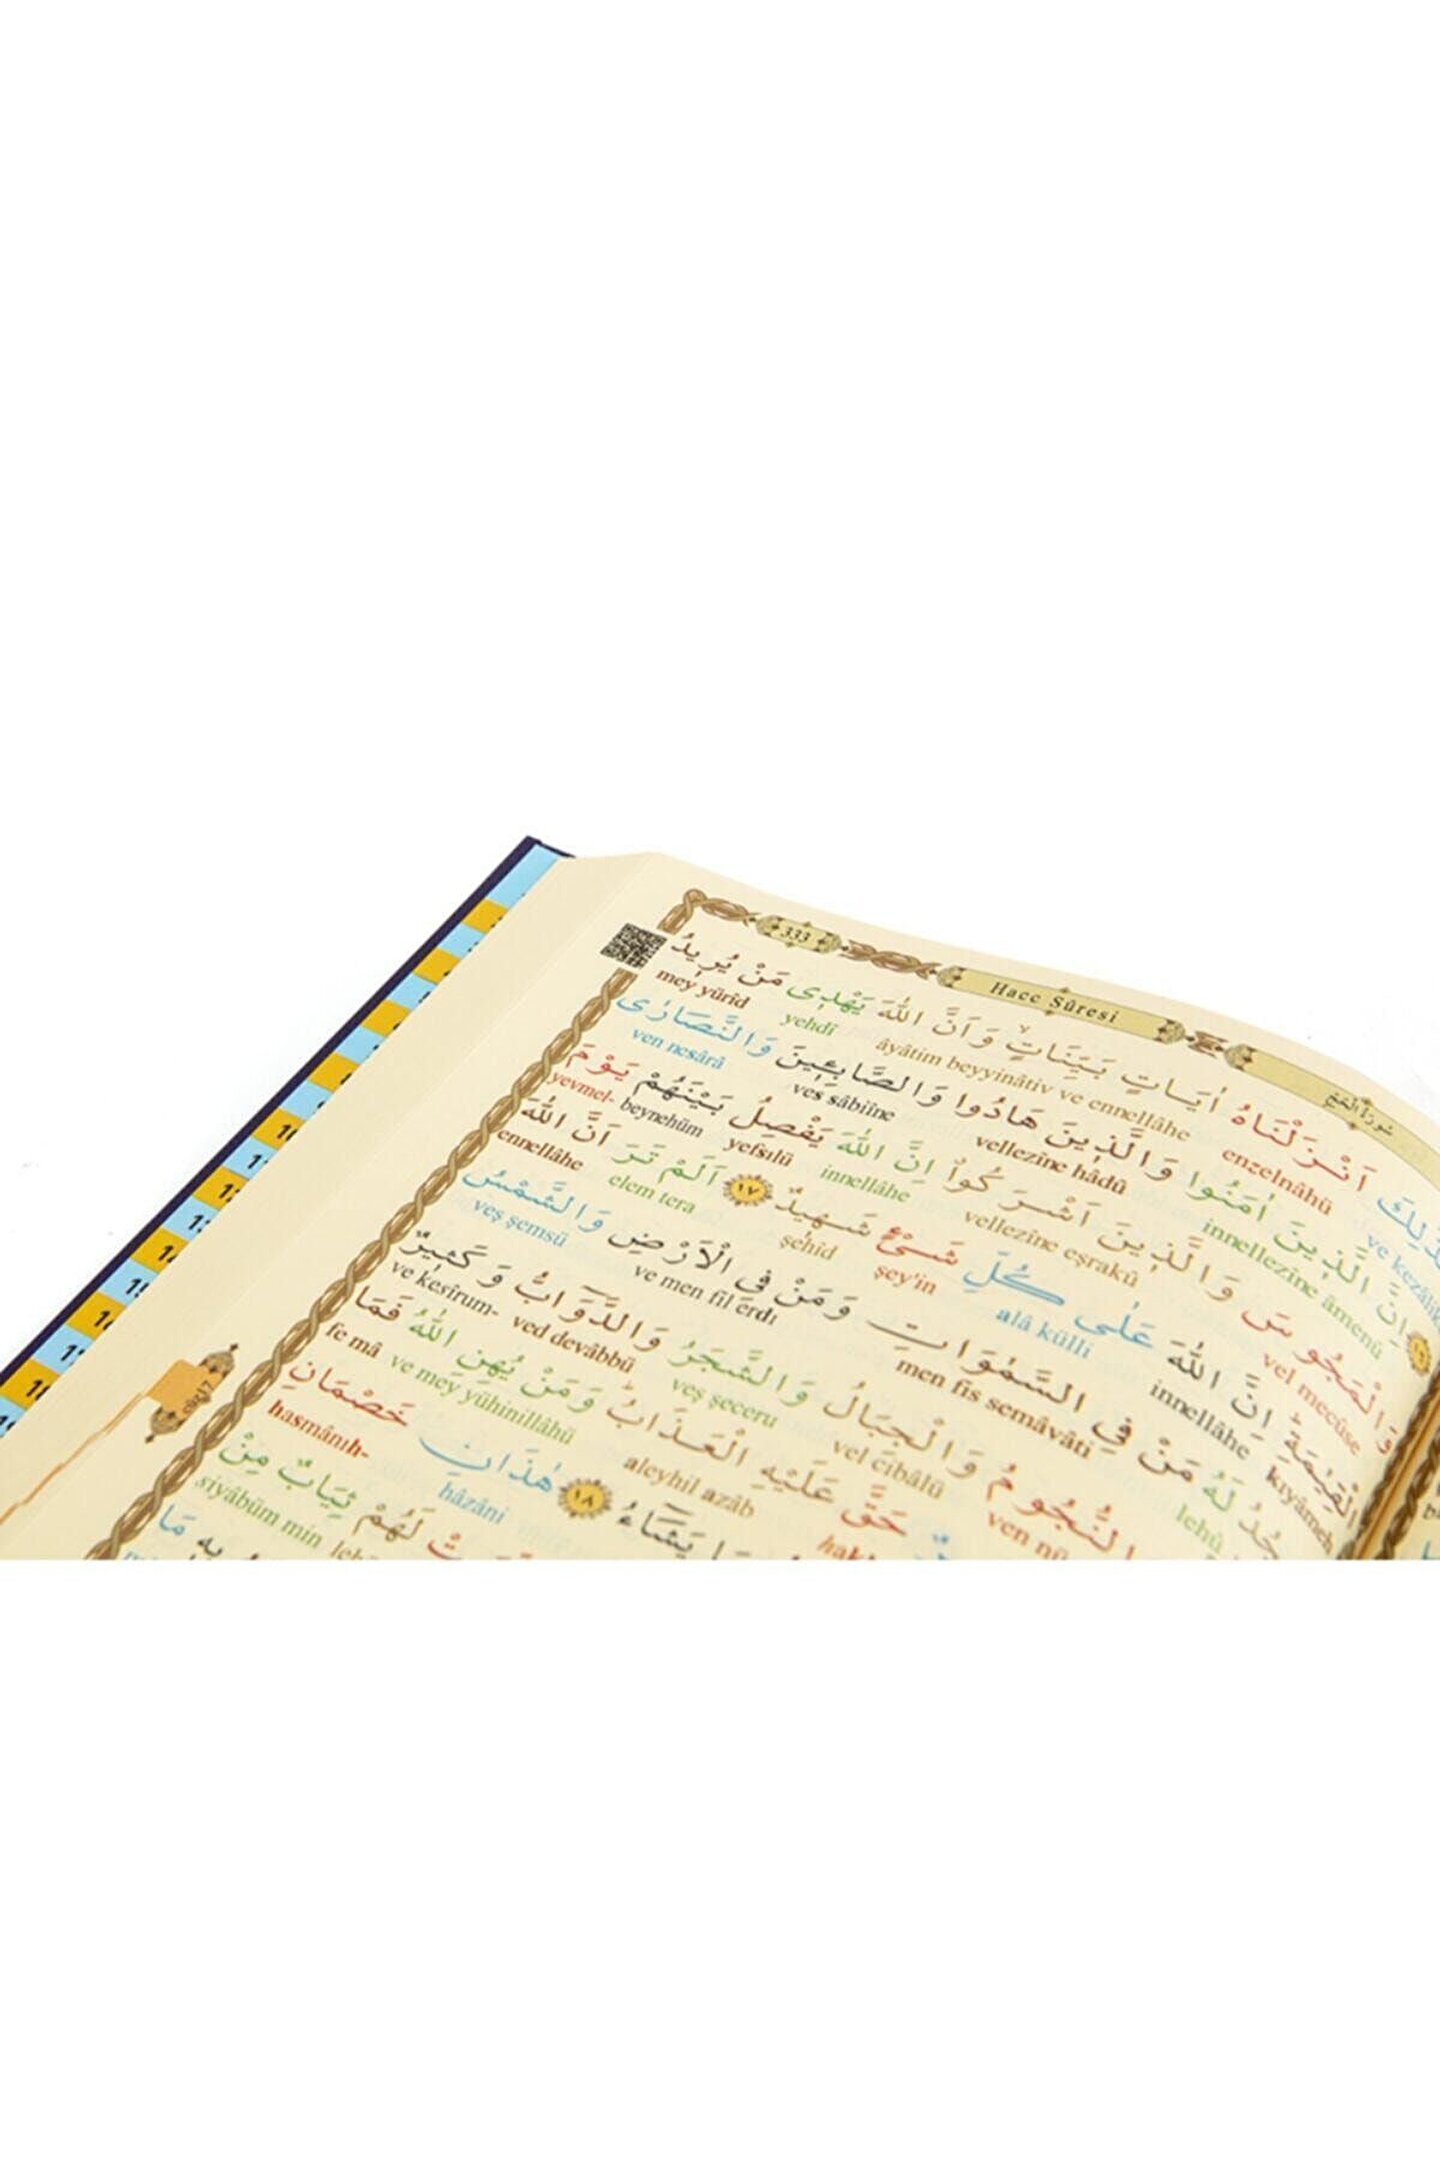 333
Hacc Sûresi
سُورَةُ الْحَجِّ
اَنْزَلْنَاهُ اٰيَاتٍ بَيِّنَاتٍ وَاَنَّ اللّٰهَ يَهْدٖى مَنْ يُرٖيدُ
enzelnâhü âyâtim beyyinâtiv ve ennellâhe yehdî mey yürîd
اِنَّ الَّذٖينَ اٰمَنُوا وَالَّذٖينَ هَادُوا وَالصَّابِـٖٔينَ وَالنَّصَارٰى
innellezîne âmenû vellezîne hâdû ves sâbiîne ven nesârâ
وَالْمَجُوسَ وَالَّذٖينَ اَشْرَكُوا اِنَّ اللّٰهَ يَفْصِلُ بَيْنَهُمْ يَوْمَ
vel mecûse vellezîne eşrakû innellâhe yefsılü beynehüm yevmel-
الْقِيٰمَةِ اِنَّ اللّٰهَ عَلٰى كُلِّ شَىْءٍ شَهٖيدٌ ١٧ اَلَمْ تَرَ اَنَّ اللّٰهَ
kıyâmeh innellâhe alâ külli şey'in şehîd elem tera ennellâhe
لَهُ مَنْ فِى السَّمٰوَاتِ وَمَنْ فِى الْاَرْضِ وَالشَّمْسُ
lehû men fis semâvâti ve men fil erdı veş şemsü
النُّجُومُ وَالْجِبَالُ وَالشَّجَرُ وَالدَّوَابُّ وَكَثٖيرٌ
ven nü vel cibâlü veş şeceru ved devâbbü ve kesîrum-
حَقَّ عَلَيْهِ الْعَذَابُ وَمَنْ يُهِنِ اللّٰهُ فَمَا
aleyhil azâb ve mey yühinillâhü fe mâ
يَشَاءُ ١٨ هٰذَانِ خَصْمَانِ
hâzâni hasmânıh-
لَهُمْ ثِيَابٌ مِنْ
siyâbüm min
مَا
cüz17